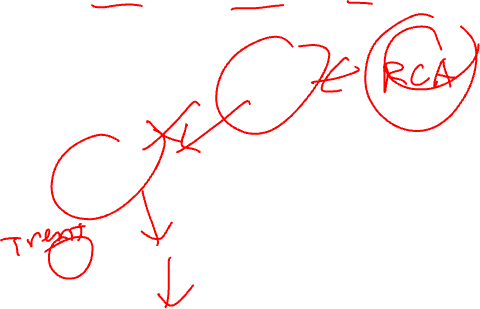 RCA
Trent